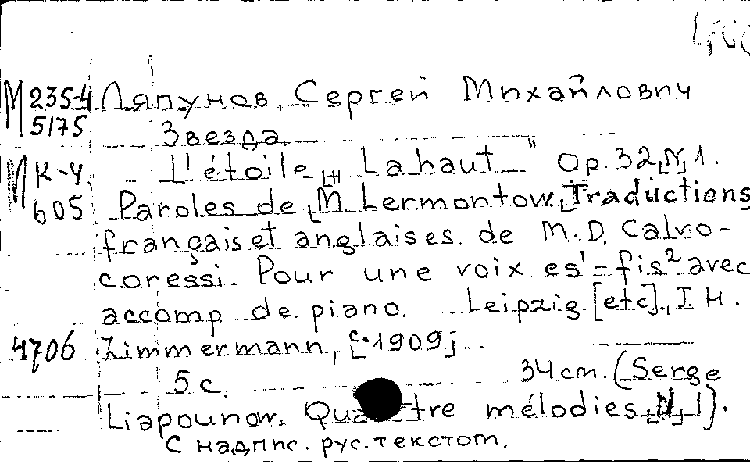 М 235-4 Ляпунов, Сергей Михайлович
5175 Звезда
М К-4 L'étoile „Lahaut" Op. 32, N 1.
605 Paroles de M. Lermontow, Traductions
français et anglaises. de M.D. Calvo-
coressi. Pour une voix es¹-fis² avec
accomp de piano. Leipzig [etc], I H.
4706 Zimmermann, [c. 1909].
5 c. 34 cm. (Serge
Liapounow. Quatre mélodies, N 1).
С надпис. рус. текстом.